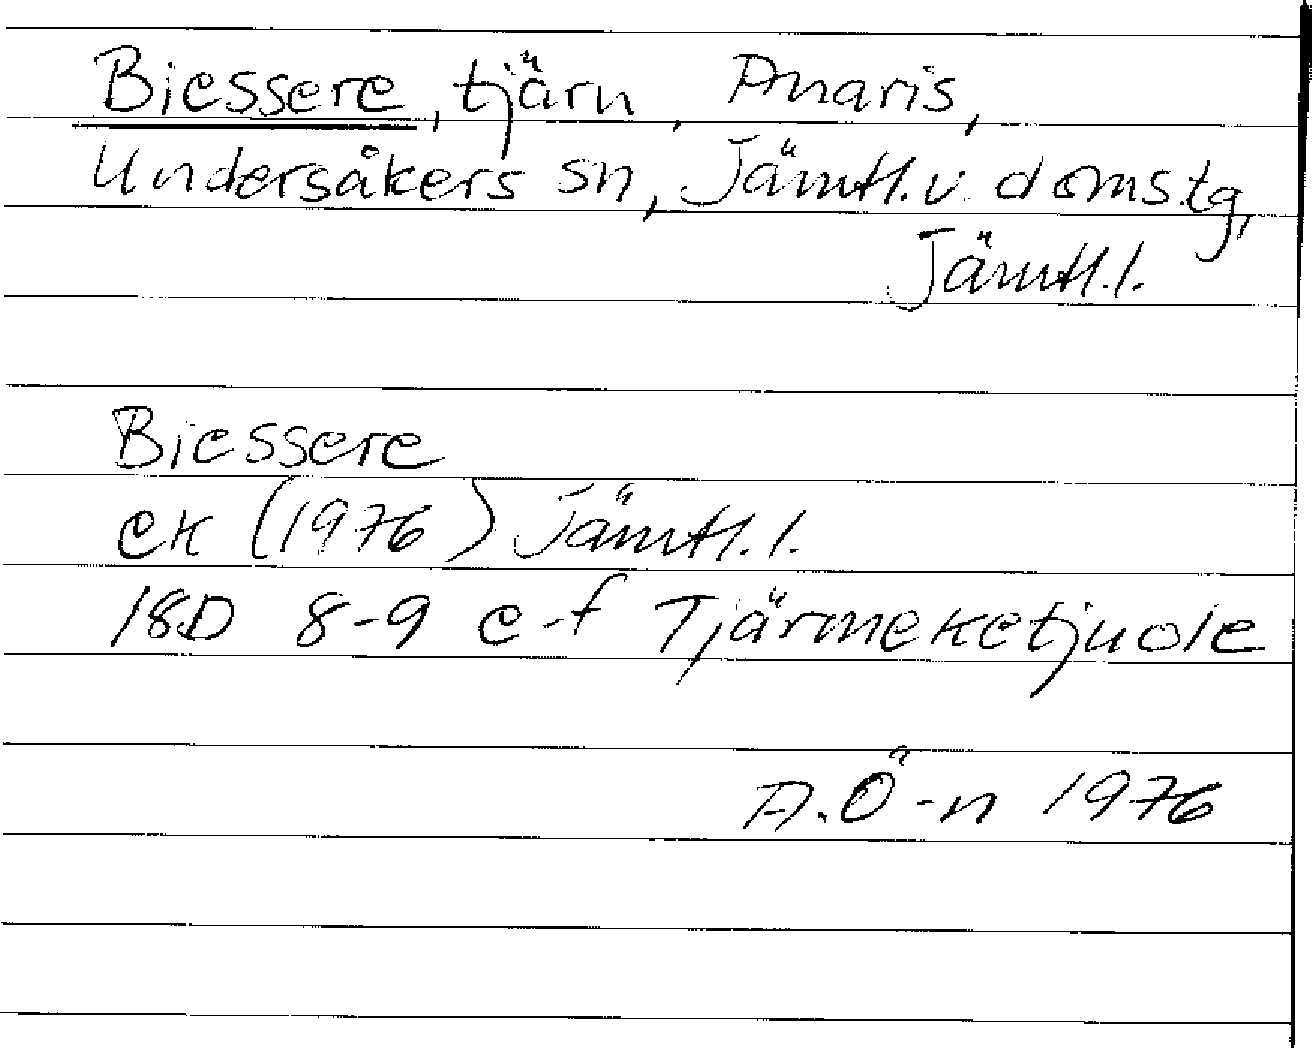 Biessere, tjärn, Anaris,
Undersåkers sn, Jämtl.v. doms.tg,
Jämtl.l.
Biessere
ek (1976) Jämtl.l.
18D 8-9 e-f Tjärmeketjuole
A.Ö-n 1976